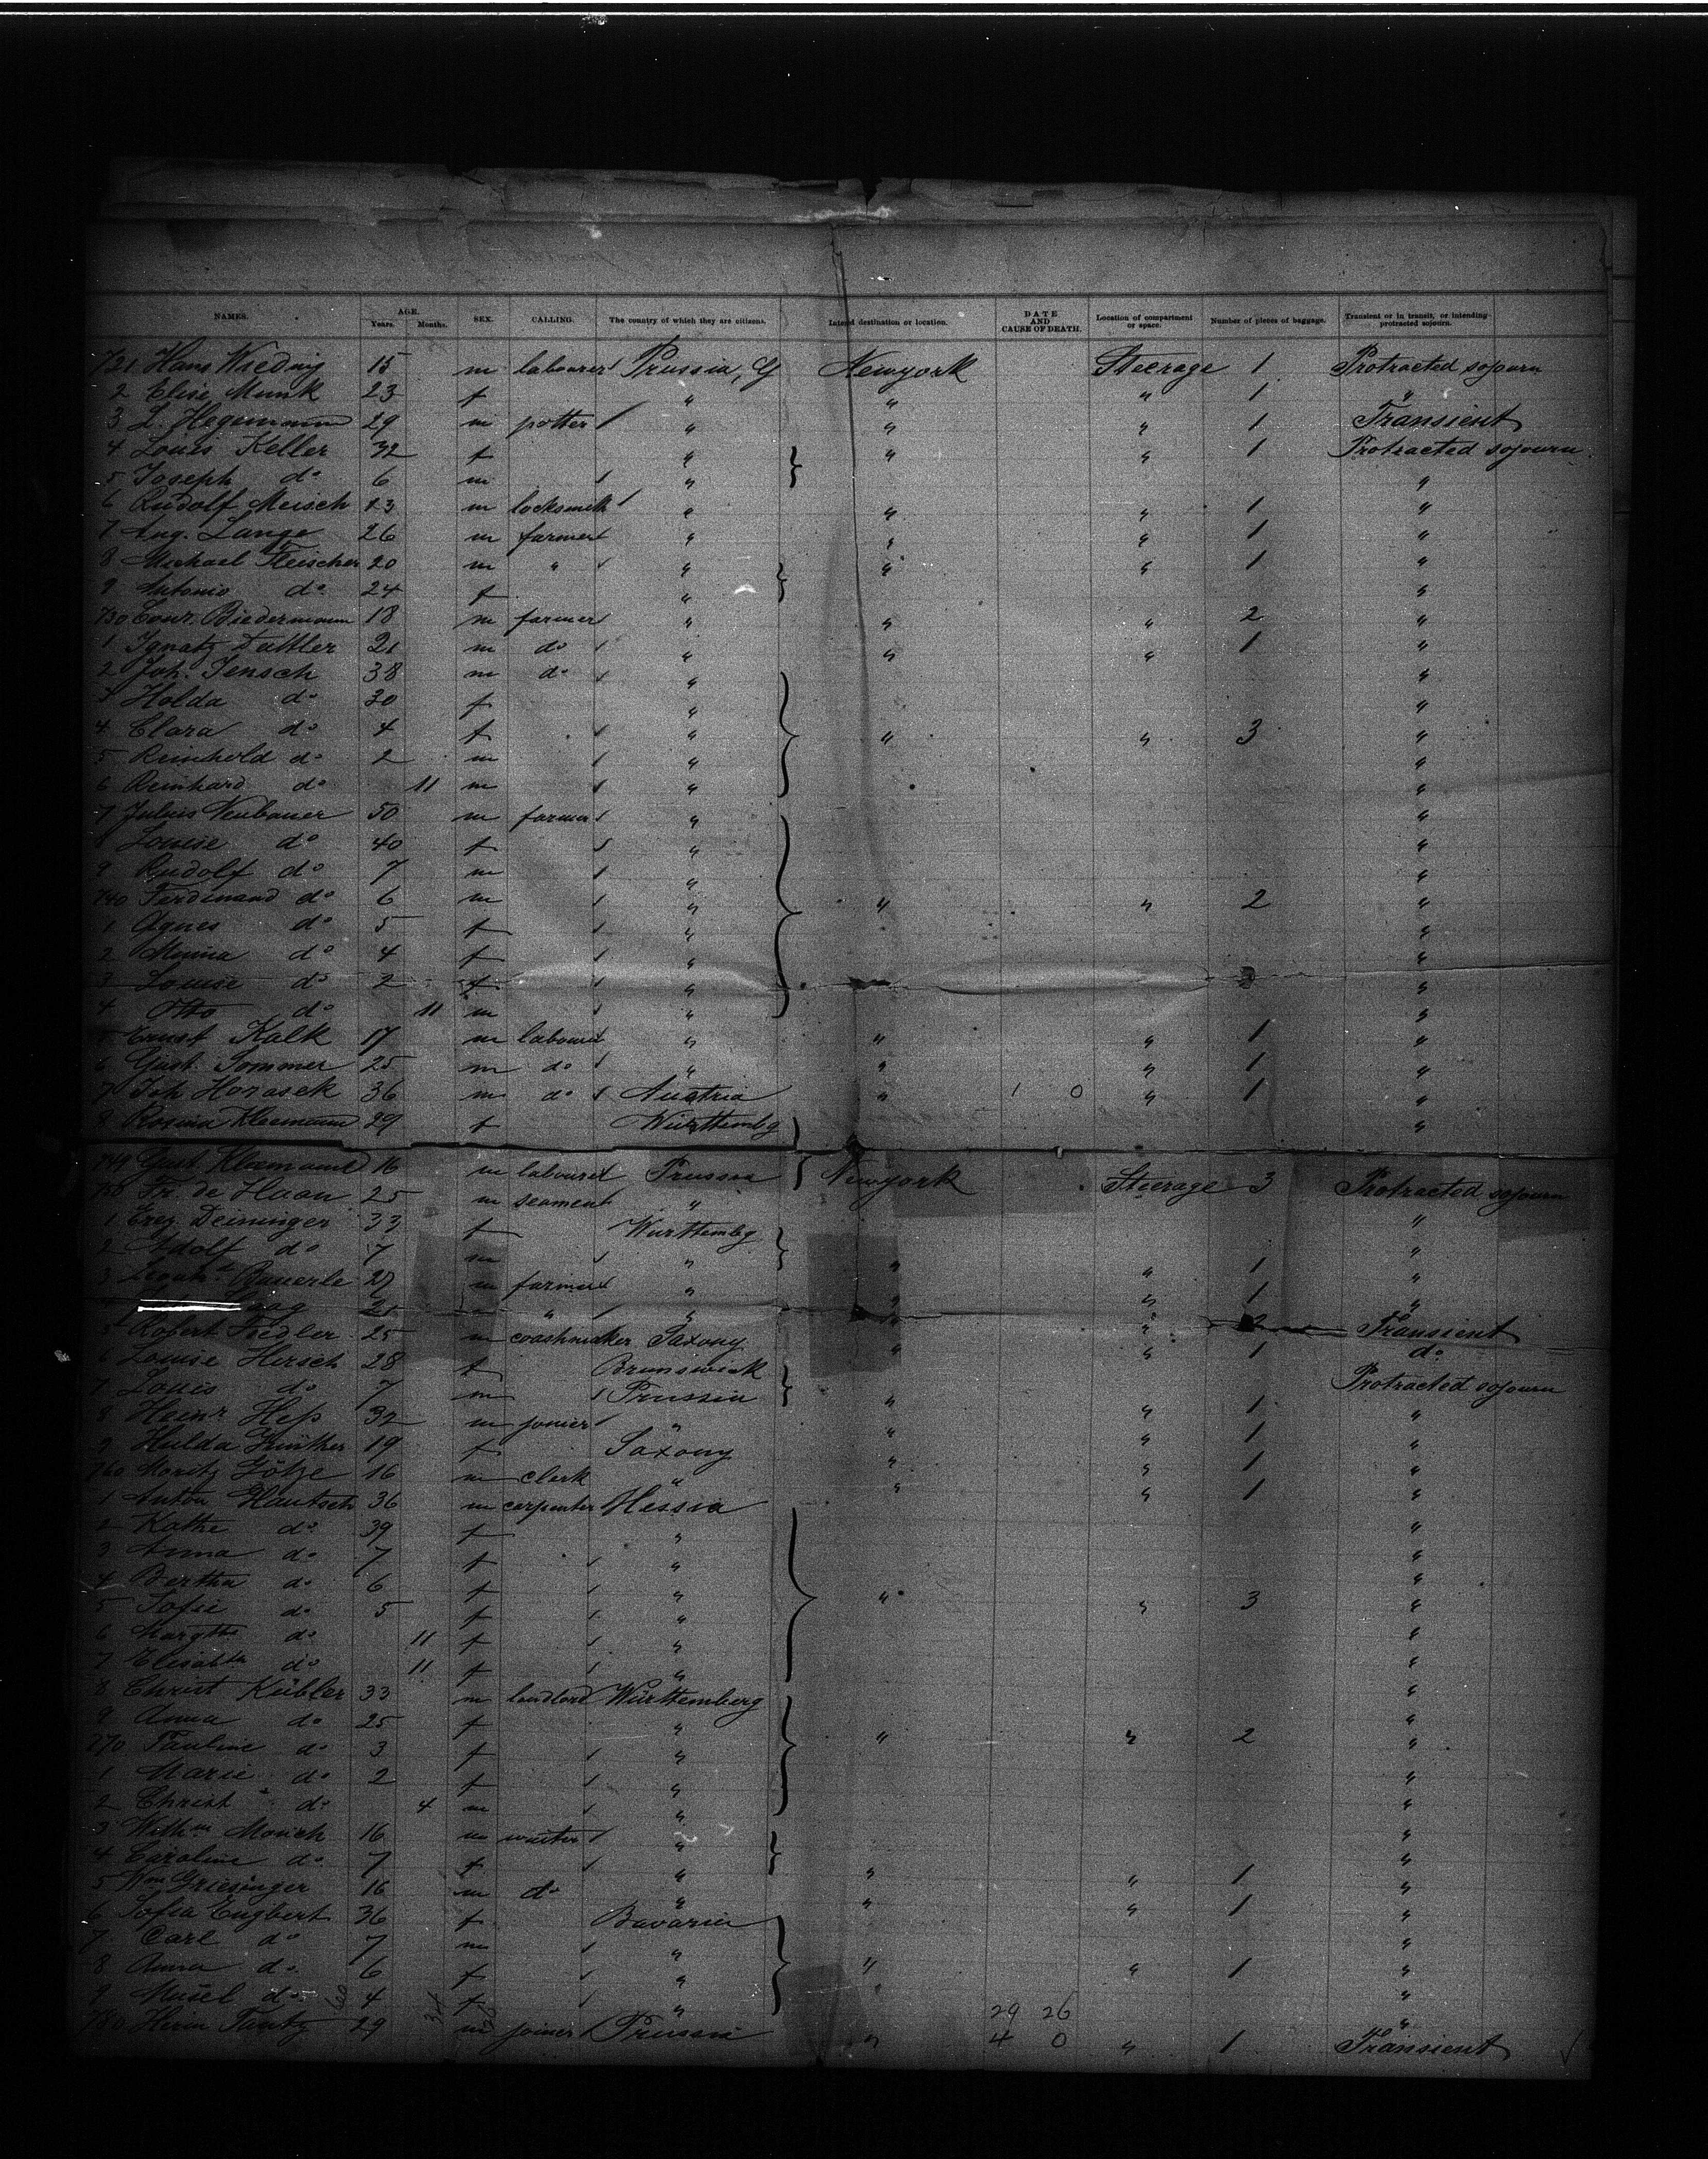 NAMES. AGE. Years. Months. SEX. CALLING. The country of which they are citizens. Intend destination or location. DATE AND CAUSE OF DEATH. Location of compartment or space. Number of pieces of baggage. Transient or in transit, or intending protracted sojourn.
721 Hans Wieding 15 m labourer Prussia, G Newyork Steerage 1 Protracted sojourn
2 Elise Munk 23 f " " " 1 "
3 L. Hegemann 29 m potter " " " 1 Transient
4 Louis Keller 32 f " " " 1 Protracted sojourn
5 Joseph do 6 m " "
6 Rudolf Meisch 23 m locksmith " " " 1 "
7 Aug. Lange 26 m farmer " " " 1 "
8 Michael Fleischer 20 m " " " " 1 "
9 Antonio do 24 f " "
730 Conr. Biedermann 18 m farmer " " " 2 "
1 Ignatz Duttler 21 m do " " " 1 "
2 Joh. Jensch 38 m do " "
3 Holda do 30 f " "
4 Clara do 4 f " " " 3 "
5 Reinhold do 2 m " "
6 Reinhard do 11 m " "
7 Julius Neubauer 50 m farmer " "
8 Louise do 40 f " "
9 Rudolf do 7 m " "
740 Ferdinand do 6 m " " " 2 "
1 Agnes do 5 f " "
2 Minna do 4 f " "
3 Louise do 2 f " "
4 Otto do 11 m " "
5 Ernst Kalk 17 m labourer " " " 1 "
6 Gust. Sommer 25 m do " " " 1 "
7 Joh Horasek 36 m do Austria " 1 0 " 1 "
8 Rosina Kleemann 29 f Württembg "
749 Gust. Kleemann 16 m labourer Prussia Newyork Steerage 3 Protracted sojourn
750 Fr. de Haan 25 m seament " "
1 Crez. Deininger 33 f Württembg "
2 Adolf do 7 m " " " 1 "
3 Leonh. Bauerle 27 m farmer " " " 1 "
21 " " " " 2 Transient
5 Robert Fiedler 25 m coachmaker Saxony " " 1 do
6 Louise Hirsch 28 f Brunswick Protracted sojourn
7 Louis do 7 m Prussia " " 1 "
8 Heinr Heß 32 m joiner " " " 1 "
9 Hulda Günther 19 f Saxony " " 1 "
760 Moritz Götze 16 m clerk " " " 1 "
1 Anton Hautsch 36 m carpenter Hessia "
2 Kathe do 39 f " "
3 Anna do 7 f " "
4 Bertha do 6 f " " " 3 "
5 Sofie do 5 f " "
6 Margthe do 11 f " "
7 Elisabth do 11 f " "
8 Christ Kübler 33 m landlord Württemberg "
9 Anna do 25 f " "
770 Pauline do 3 f " " " 2 "
1 Marie do 2 f " "
2 Christ do 4 m " "
3 Wilhm Morich 16 m waiter " "
4 Caroline do 7 f " " " 1 "
5 Wm Griesinger 16 m do " " " 1 "
6 Sofia Engbert 36 f Bavaria "
7 Carl do 7 m " "
8 Anna do 6 f " " " 1 "
9 do 4 f " 29 26 "
780 Herm Tantz 29 m joiner Prussia " 4 0 " 1 Transient